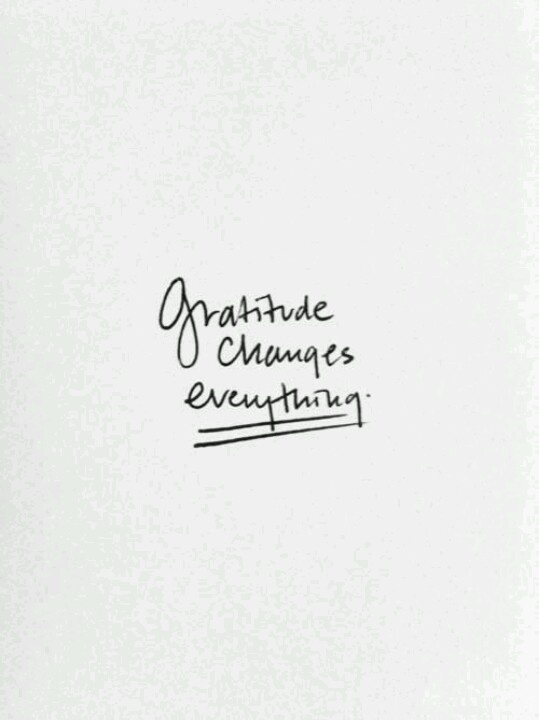 gratitude
changes
everything.